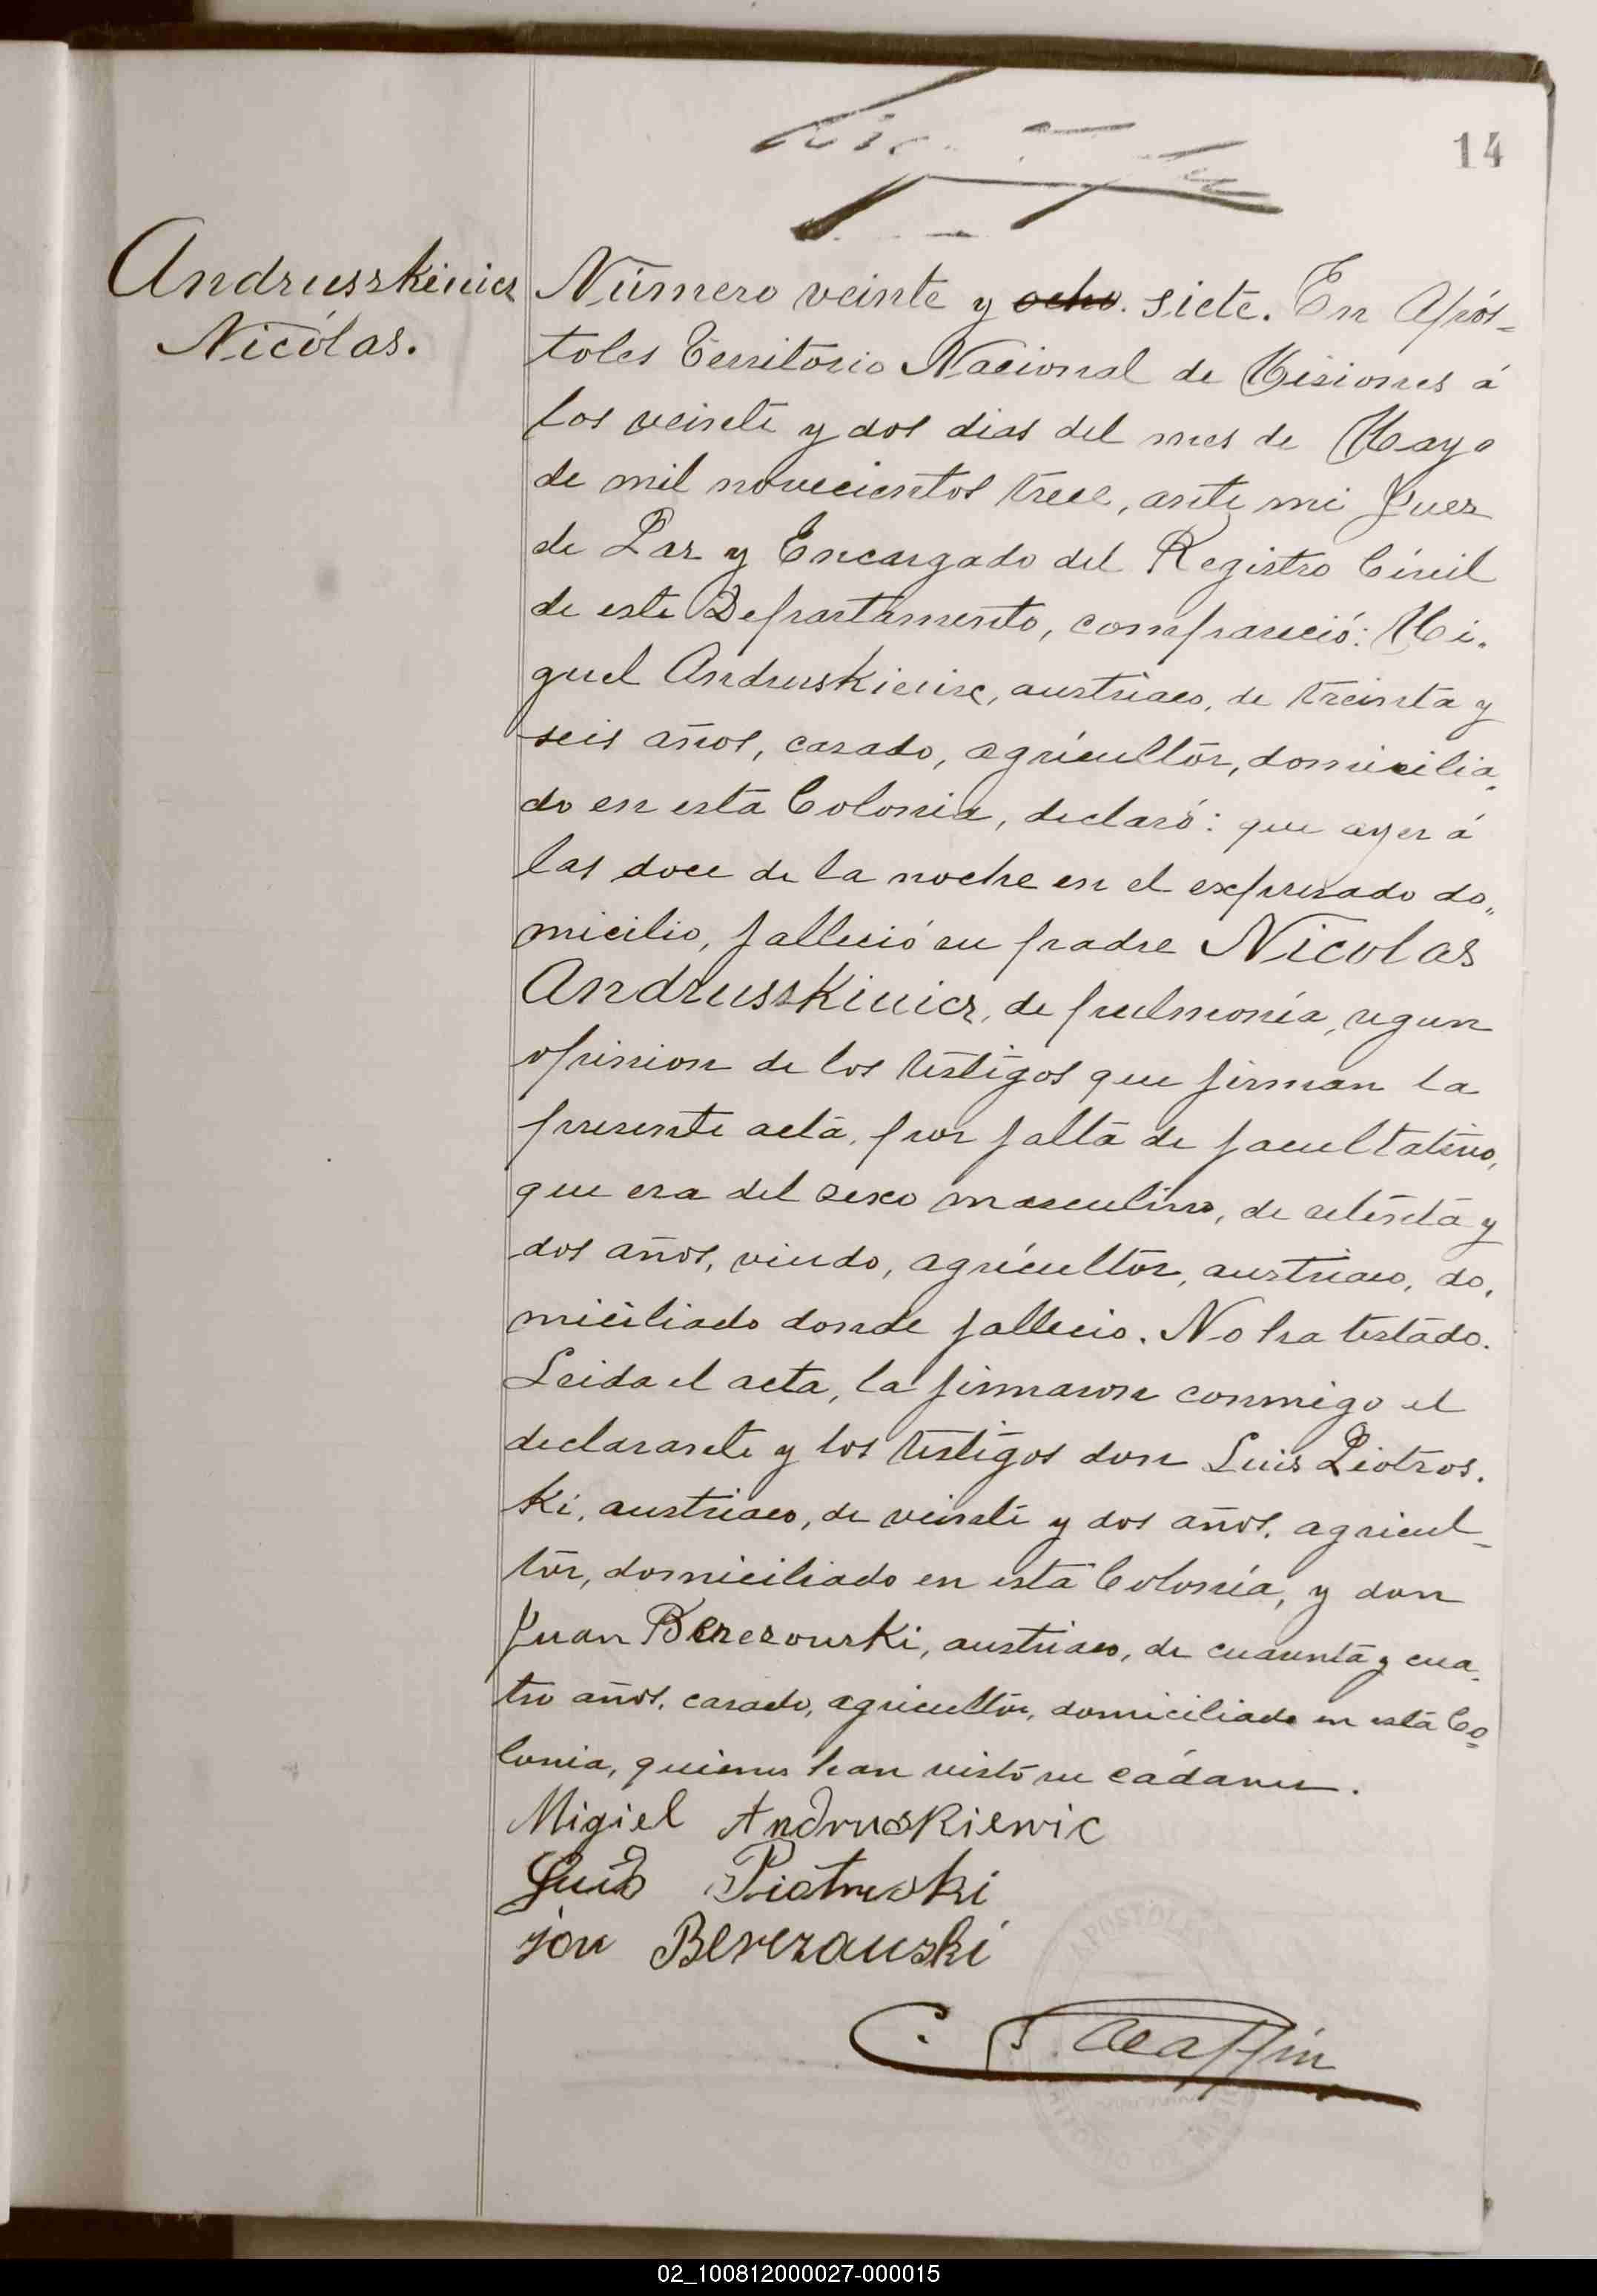 14
Andruszkiewicz
Nicólas.
Número veinte y ocho. siete. En Após-
toles Territorio Nacional de Misiones á
los veinte y dos dias del mes de Mayo
de mil novecientos trece, ante mi Juez
de Paz y Encargado del Registro Civil
de este Departamento, compareció: Mi-
guel Andruskiewic, austriaco, de treinta y
seis años, casado, agricultor, domicilia-
do en esta Colonia, declaró: que ayer á
las doce de la noche en el expresado do-
micilio, falleció su padre Nicolas
Andruszkiwicz, de pulmonía, segun
opinion de los testigos que firman la
presente acta, por falta de facultativo,
que era del sexo masculino, de setenta y
dos años, viudo, agricultor, austriaco, do-
miciliado donde fallecio. No ha testado.
Leida el acta, la firmaron conmigo el
declarante y los testigos don Luis Piotros-
ki, austriaco, de veinte y dos años, agricul-
tor, domiciliado en esta Colonia, y don
Juan Berezowski, austriaco, de cuarenta y cua-
tro años, casado, agricultor, domiciliado en esta Co-
lonia, quienes han visto su cádaver.
Migiel Andruskiewic
Luis Piotroski
Jon Berezauski
APOSTOLES
02_100812000027-000015